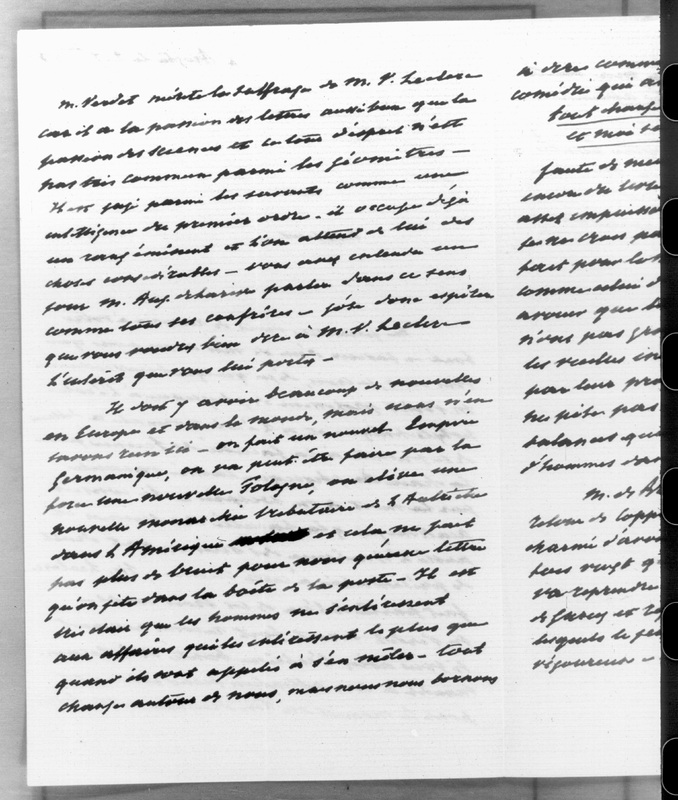 M. Verdet mérite le suffrage de M. V. Leclerc
car il a la passion des lettres aussi bien que la
passion des sciences et ce tour d'esprit n'est
pas très commun parmi les géomètres —
Il est jugé parmi les savants comme une
intelligence du premier ordre - il occupe déjà
un rang éminent et l'on attend de lui des
choses considérables — vous avez entendu un
jour M. Aug. parler dans ce sens
comme tous ses confrères — j'ose donc espérer
que vous voudrez bien dire à M. V. Leclerc
l'intérêt que vous lui portez —
Il doit y avoir beaucoup de nouvelles
en Europe et dans le monde, mais nous n'en
savons rien ici — on fait un nouvel Empire
Germanique, on va peut être faire par la
force une nouvelle Pologne, on élève une
nouvelle monarchie tributaire de l'Autriche
dans l'Amérique et cela ne fait
pas plus de bruit pour nous qu'une lettre
qu'on jète dans la boîte de la poste — Il est
très clair que les hommes ne s'intéressent
aux affaires qui les intéressent le plus que
quand ils sont appelés à s'en mêler — tout
change autour de nous, mais nous nous bornons
à dire comme
comédie qui a
tout change
et moi
faute de
encore
assez
tout pour
comme celui
avouer que
n'ont pas
les vieilles
par leur
ne pèse pas
balances qui
d'hommes dans
M. de
retour de
charmé d'avoir
bois vingt
va reprendre
de Garcy et
lesquels le
vigoureux —